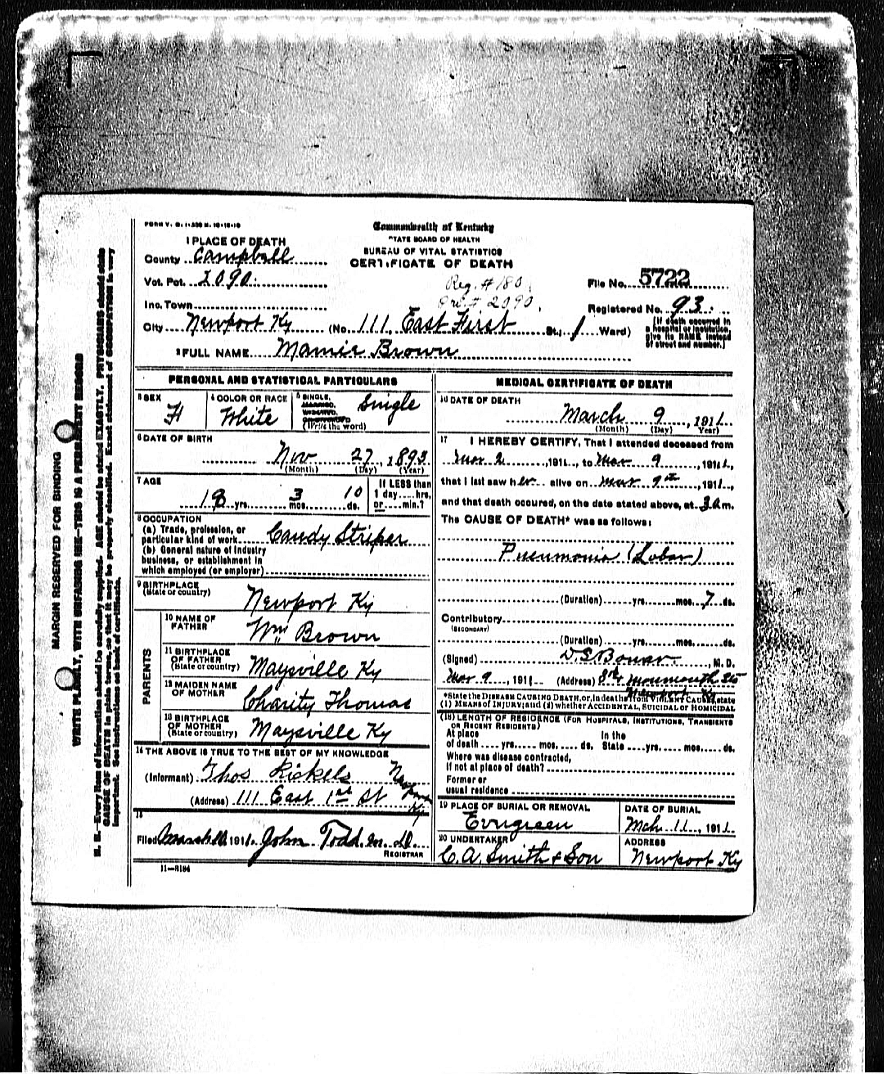 FORM V. S. 1-
Commonwealth of Kentucky
STATE BOARD OF HEALTH
BUREAU OF VITAL STATISTICS
CERTIFICATE OF DEATH
1 PLACE OF DEATH
County Campbell
Vot. Pct. 2090
Reg. # 180
2090
File No. 5722
Inc. Town
Registered No. 93
City Newport Ky (No. 111 East First St.; 1 Ward)
[If death occurred in hospital or institution, give its NAME instead of street and number.]
2 FULL NAME Mamie Brown
PERSONAL AND STATISTICAL PARTICULARS
3 SEX
F
4 COLOR OR RACE
White
5 SINGLE,
(Write the word)
Single
6 DATE OF BIRTH
Nov 27, 1892
(Month) (Day) (Year)
7 AGE
18 yrs. 3 mos. 10 ds.
If LESS than 1 day....hrs. or....min.?
8 OCCUPATION
(a) Trade, profession, or particular kind of work Candy Striper
(b) General nature of industry business, or establishment in which employed (or employer)
9 BIRTHPLACE
(State or country)
Newport Ky
PARENTS
10 NAME OF FATHER
Wm Brown
11 BIRTHPLACE OF FATHER
(State or country)
Maysville Ky
12 MAIDEN NAME OF MOTHER
Charity Thomas
13 BIRTHPLACE OF MOTHER
(State or country)
Maysville Ky
14 THE ABOVE IS TRUE TO THE BEST OF MY KNOWLEDGE
(Informant) Thos Rickels
(Address) 111 East 1st St Newport Ky
15
Filed March 1911 John Todd M. D.
REGISTRAR
11-3184
MEDICAL CERTIFICATE OF DEATH
16 DATE OF DEATH
March 9, 1911
(Month) (Day) (Year)
17 I HEREBY CERTIFY, That I attended deceased from
Mar 2, 1911, to Mar 9, 1911,
that I last saw her alive on Mar 9th, 1911,
and that death occured, on the date stated above, at 3 a m.
The CAUSE OF DEATH* was as follows:
Pneumonia (Lobar)
(Duration) yrs. mos. 7 ds.
Contributory
(SECONDARY)
(Duration) yrs. mos. ds.
(Signed) M. D.
Mar 9, 1911 (Address) 8th & Monmouth Sts
Newport Ky
*State the DISEASE CAUSING DEATH, or, in deaths from VIOLENT CAUSES, state
(1) MEANS OF INJURY; and (2) whether ACCIDENTAL, SUICIDAL or HOMICIDAL
(18) LENGTH OF RESIDENCE (FOR HOSPITALS, INSTITUTIONS, TRANSIENTS OR RECENT RESIDENTS)
At place of death yrs. mos. ds. In the State yrs. mos. ds.
Where was disease contracted,
if not at place of death?
Former or
usual residence
19 PLACE OF BURIAL OR REMOVAL
Evergreen
DATE OF BURIAL
Mch 11, 1911
20 UNDERTAKER
C. A. Smith & Son
ADDRESS
Newport Ky
MARGIN RESERVED FOR BINDING
WRITE PLAINLY, WITH UNFADING INK—THIS IS A PERMANENT RECORD
N. B.—Every item of information should be carefully supplied. AGE should be stated EXACTLY. PHYSICIANS should state
CAUSE OF DEATH in plain terms, so that it may be properly classified. Exact statement of OCCUPATION is very
important. See instructions on back of certificate.